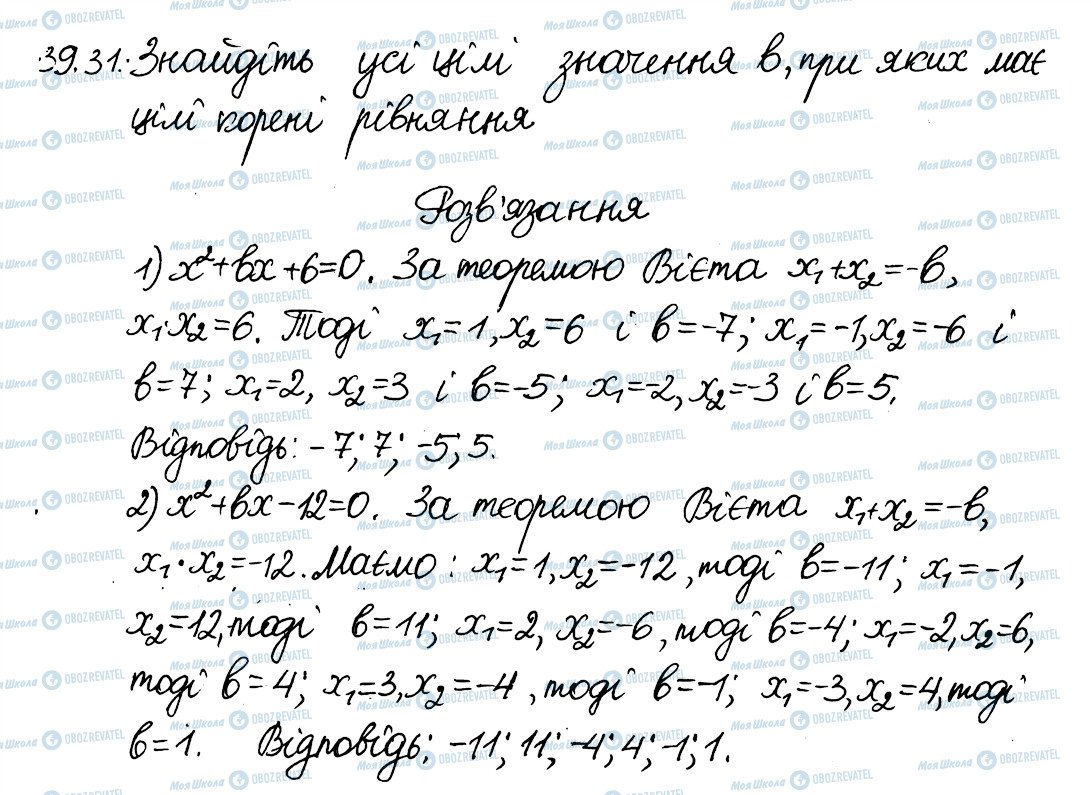 39.31. Знайдіть усі цілі значення в, при яких має
цілі корені рівняння
Розв'язання
1) x²+вx+6=0. За теоремою Вієта x₁+x₂=-в,
x₁·x₂=6. Тоді x₁=1, x₂=6 і в=-7; x₁=-1, x₂=-6 і
в=7; x₁=2, x₂=3 і в=-5; x₁=-2, x₂=-3 і в=5.
Відповідь: -7; 7; -5; 5.
2) x²+вx-12=0. За теоремою Вієта x₁+x₂=-в,
x₁·x₂=-12. Маємо: x₁=1, x₂=-12, тоді в=-11; x₁=-1,
x₂=12, тоді в=11; x₁=2, x₂=-6, тоді в=-4; x₁=-2, x₂=6,
тоді в=4; x₁=3, x₂=-4, тоді в=-1; x₁=-3, x₂=4, тоді
в=1. Відповідь: -11; 11; -4; 4; -1; 1.